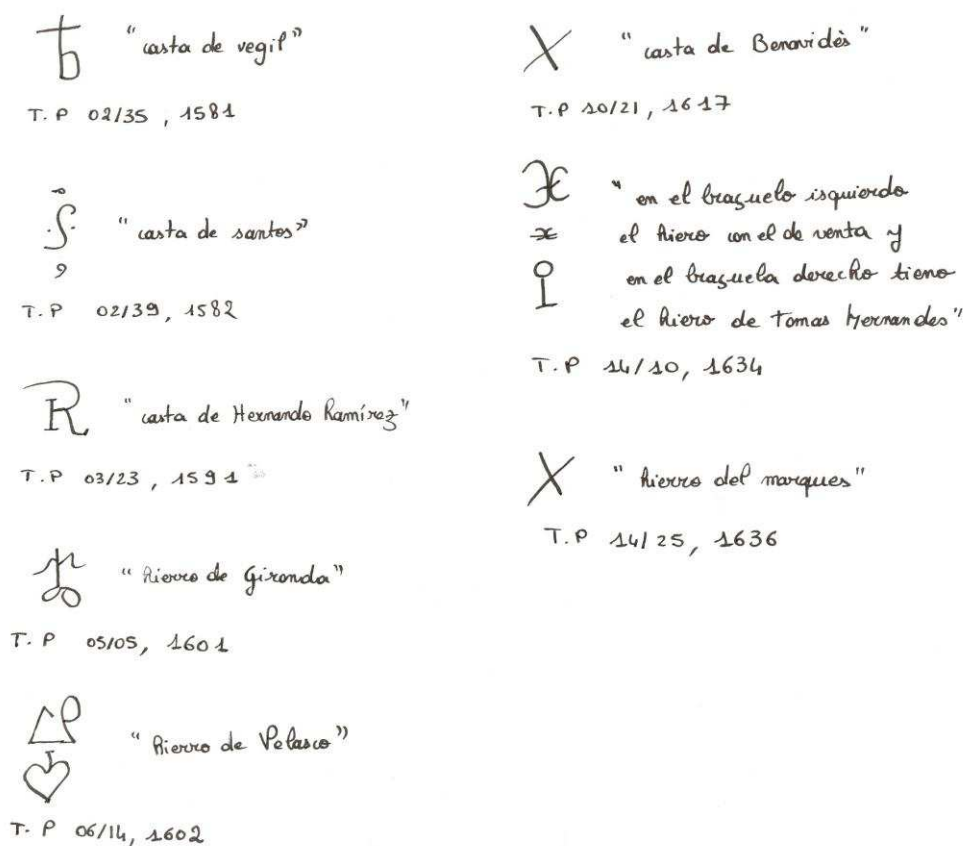 "casta de vegil"
T.P 02/35, 1581
"casta de santos"
T.P 02/39, 1582
R "casta de Hernando Ramírez"
T.P 03/23, 1591
"hierro de Gironda"
T.P 05/05, 1601
"hierro de Velasco"
T.P 06/14, 1602
X "casta de Benavidès"
T.P 10/21, 1617
"en el braçuelo isquierdo
el hiero con el de venta y
en el braçuela derecho tieno
el hiero de Tomas Hernandes"
T.P 14/10, 1634
X "hierro del marques"
T.P 14/25, 1636